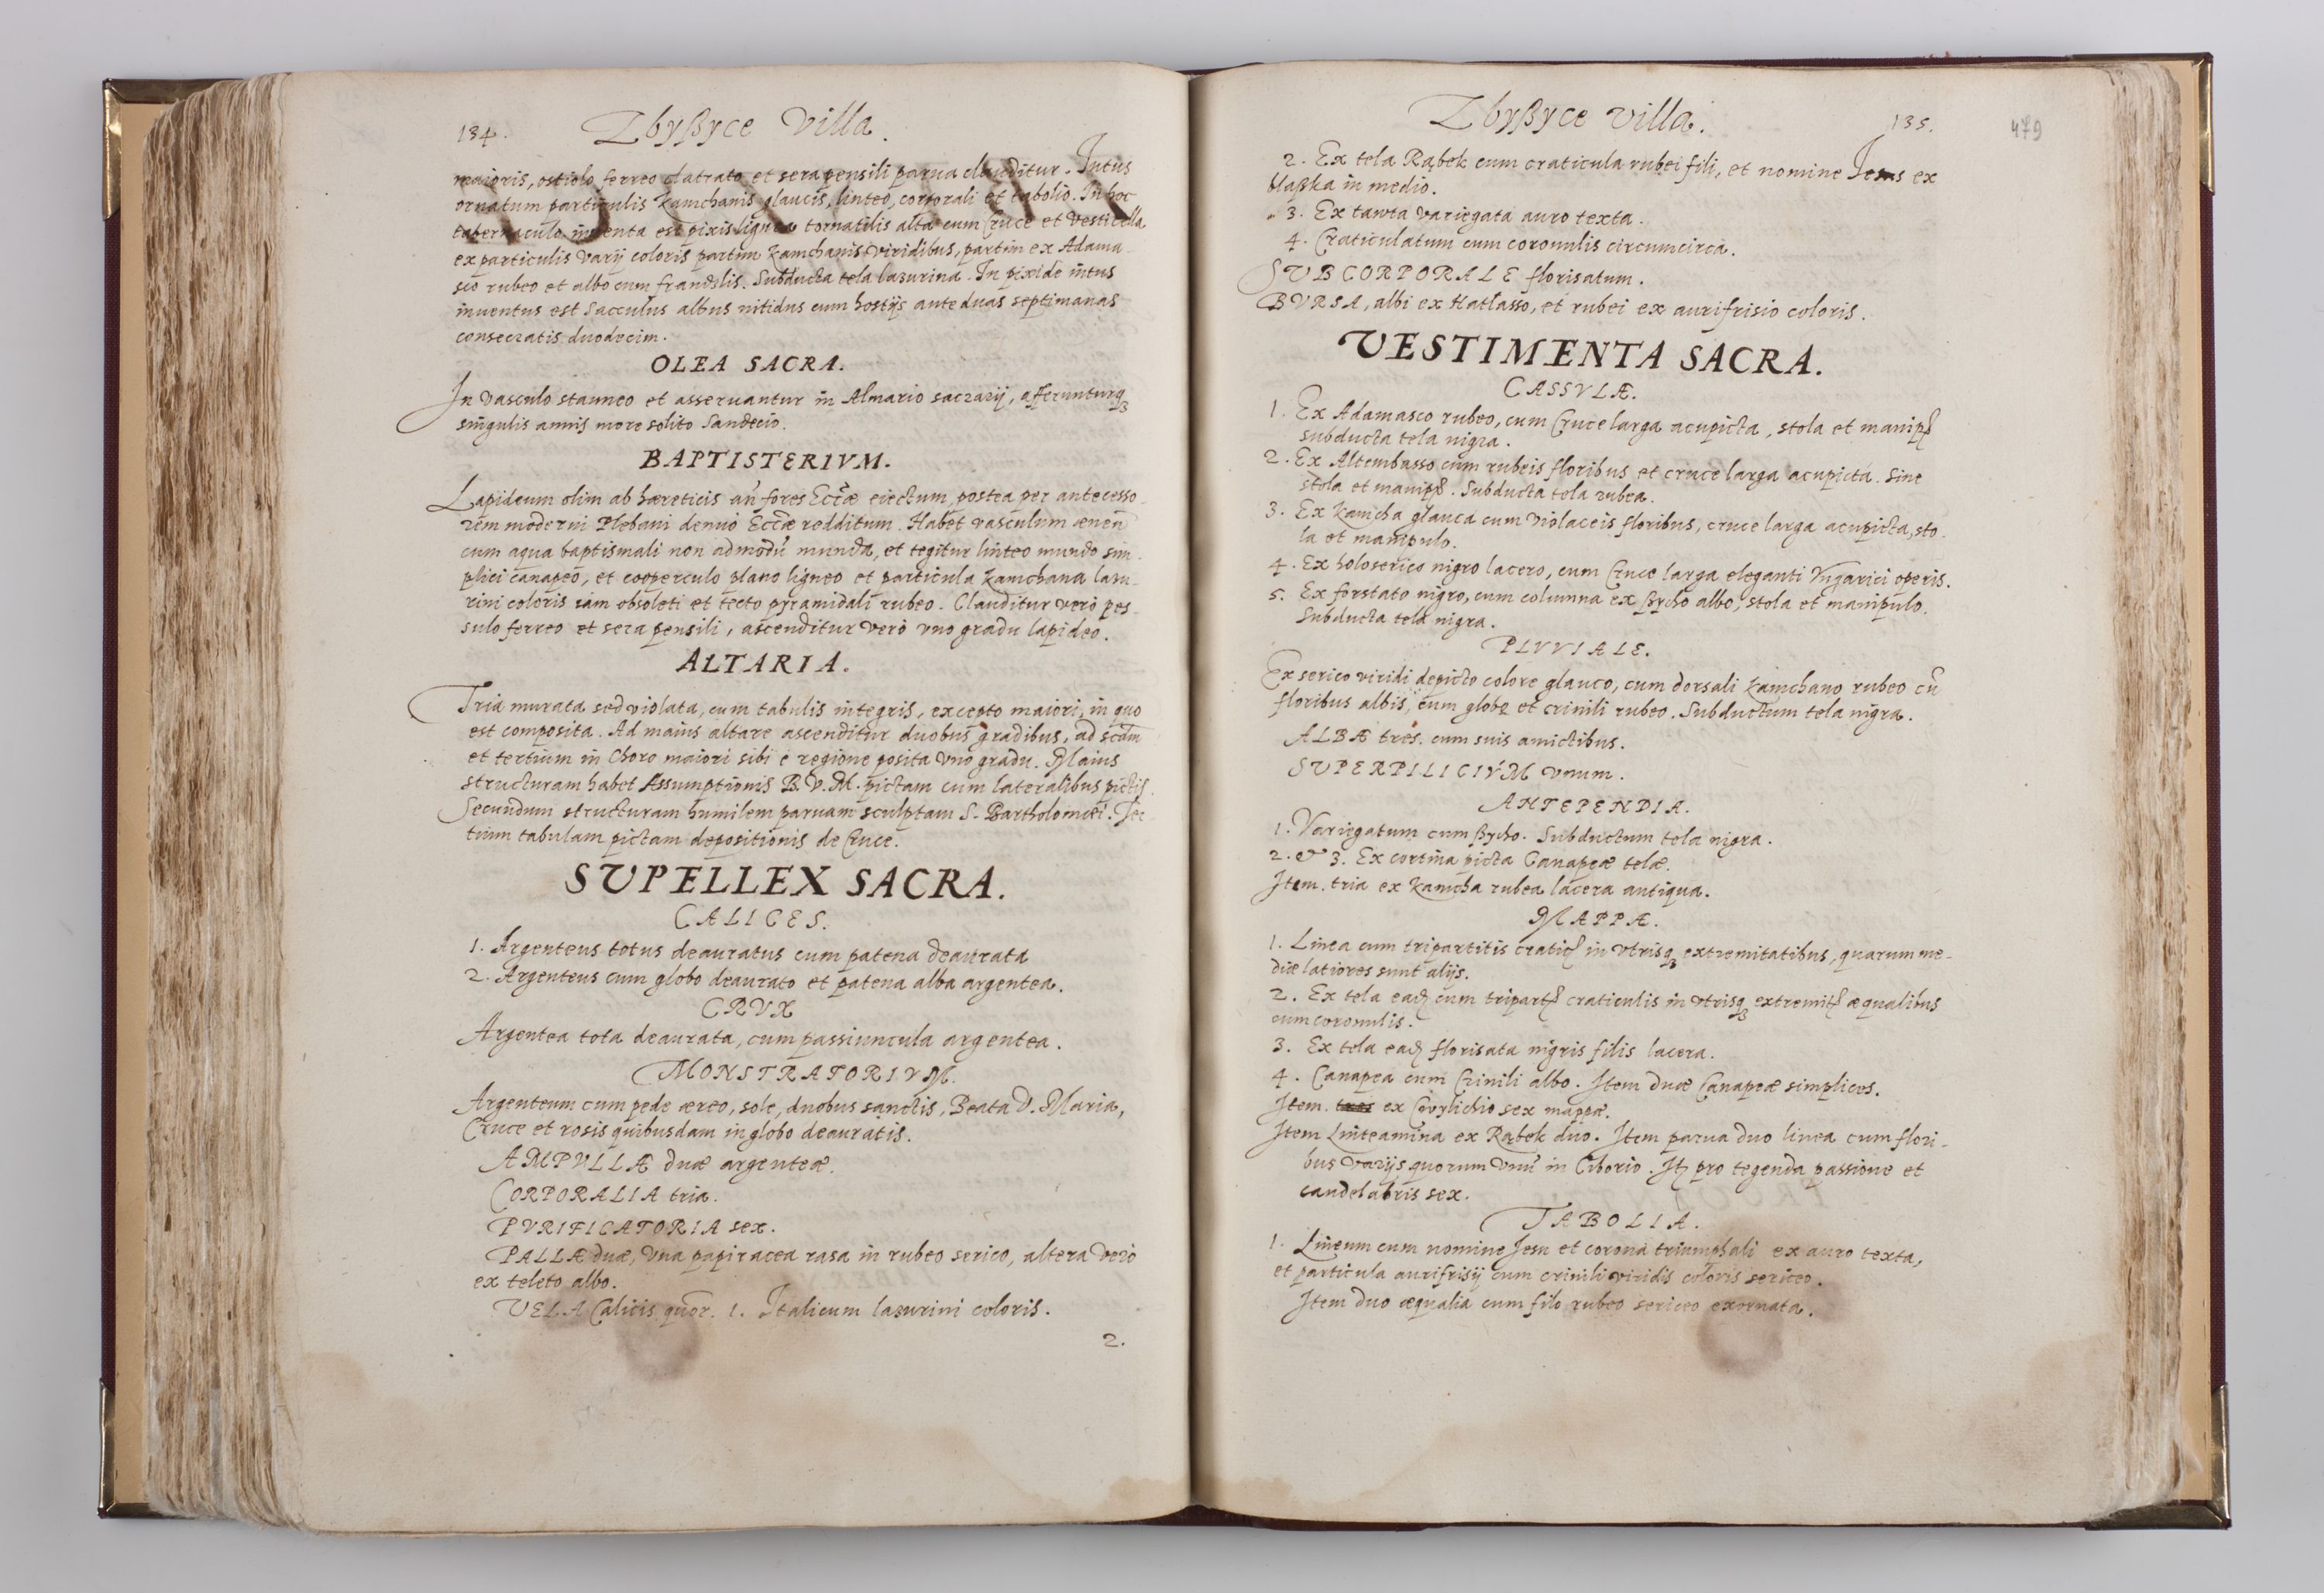 134. Zbyßyce Villa.
maioris, ostiolo ferreo clatrato et sera pensili parua clauditur. Intus
ornatum particulis kamchanis glaucis, linteo, corporali et tabolio. In hoc
tabernaculo inuenta est pixis lignea tornatilis alta cum Cruce et Vesticella
ex particulis varij coloris partim kamchanis viridibus, partim ex Adama-
sco rubeo et albo cum frandzlis. Subducta tela lazurina. In pixide intus
inuentus est Sacculus albus nitidus cum hostijs ante duas septimanas
consecratis duodecim.
OLEA SACRA.
In vasculo stanneo et asseruantur in Almario sacrarij, afferunturq3
singulis annis more solito Sandecio.
BAPTISTERIVM.
Lapideum olim ab hæreticis añ fores Eccæ eiectum, postea per antecesso-
rem moderni Plebani denuò Eccæ redditum. Habet vasculum æneũ
cum aqua baptismali non admodũ munda, et tegitur linteo mundo sim-
plici canapeo, et cooperculo plano ligneo et particula kamchana lazu-
rini coloris iam obsoleti et tecto pyramidali rubeo. Clauditur verò pes-
sulo ferreo et sera pensili, ascenditur verò vno gradu lapideo.
ALTARIA.
Tria murata sed violata, cum tabulis integris, excepto maiori, in quo
est composita. Ad maius altare ascenditur duobus gradibus, ad scdm
et tertium in Choro maiori sibi è regione posita vno gradu. Maius
structuram habet Assumptionis B. V. M. pictam cum lateralibus pictis.
Secundum structuram humilem paruam sculptam S. Bartholomæi. Ter-
tium tabulam pictam depositionis de Cruce.
SVPELLEX SACRA.
CALICES.
1. Argenteus totus deauratus cum patena deaurata
2. Argenteus cum globo deaurato et patena alba argentea.
CRVX
Argentea tota deaurata, cum passiuncula argentea.
MONSTRATORIVM.
Argenteum cum pede æreo, sole, duobus sanctis, Beata V. Maria,
Cruce et rosis quibusdam in globo deauratis.
AMPVLLÆ duæ argenteæ.
CORPORALIA tria.
PVRIFICATORIA sex.
PALLÆ duæ, vna papiracea rasa in rubeo serico, altera verò
ex teleto albo.
VELA Calicis quor. 1. Italicum lazurini coloris.
2.
Zbyßyce Villa. 135. 479
2. Ex tela Rąbek cum craticula rubei fili, et nomine Jesus ex
blaßka in medio.
3. Ex tawta variegata auro texta.
4. Craticulatum cum coronulis circumcirca.
SVBCORPORALE florisatum.
BVRSA, albi ex Hatłasso, et rubei ex aurifrisio coloris.
VESTIMENTA SACRA.
CASSVLÆ.
1. Ex Adamasco rubeo, cum Cruce larga acupicta, stola et manip
subducta tela nigra.
2. Ex Altembasso cum rubeis floribus et cruce larga acupicta. Sine
stola et manip. Subducta tela rubea.
3. Ex kamcha glauca cum violaceis floribus, cruce larga acupicta, sto-
la et manipulo.
4. Ex holoserico nigro lacero, cum Cruce larga eleganti Vngarici operis.
5. Ex forstato nigro, cum columna ex ßycho albo, stola et manipulo.
Subducta tela nigra.
PLVVIALE.
Ex serico viridi depicto colore glauco, cum dorsali kamchano rubeo cũ
floribus albis, cum globo et crinili rubeo. Subductum tela nigra.
ALBÆ tres. cum suis amictibus.
SVPERPILICIVM vnum.
ANTEPENDIA.
1. Variegatum cum ßycho. Subductum tela nigra.
2. et 3. Ex cortina picta Canapeæ telæ.
Item. tria ex kamcha rubea lacera antiqua.
MAPPÆ.
1. Linea cum tripartitis cratic in vtrisq3 extremitatibus, quarum me-
diæ latiores sunt alijs.
2. Ex tela ead cum tripart craticulis in vtrisq3 extremit æqualibus
cum coronulis.
3. Ex tela ead florisata nigris filis lacera.
4. Canapea cum Crinili albo. Item duæ Canapeæ simplices.
Item. tres ex Cwylichio sex mappæ.
Item Linteamina ex Rąbek duo. Item parua duo linea cum flori-
bus varijs quorum vnũ in Ciborio. It pro tegenda passione et
candelabris sex.
TABOLIA.
1. Lineum cum nomine Jesu et corona triumphali ex auro texta,
et particula aurifrisij cum crinili viridis coloris sericeo.
Item duo æqualia cum filo rubeo sericeo exornata.